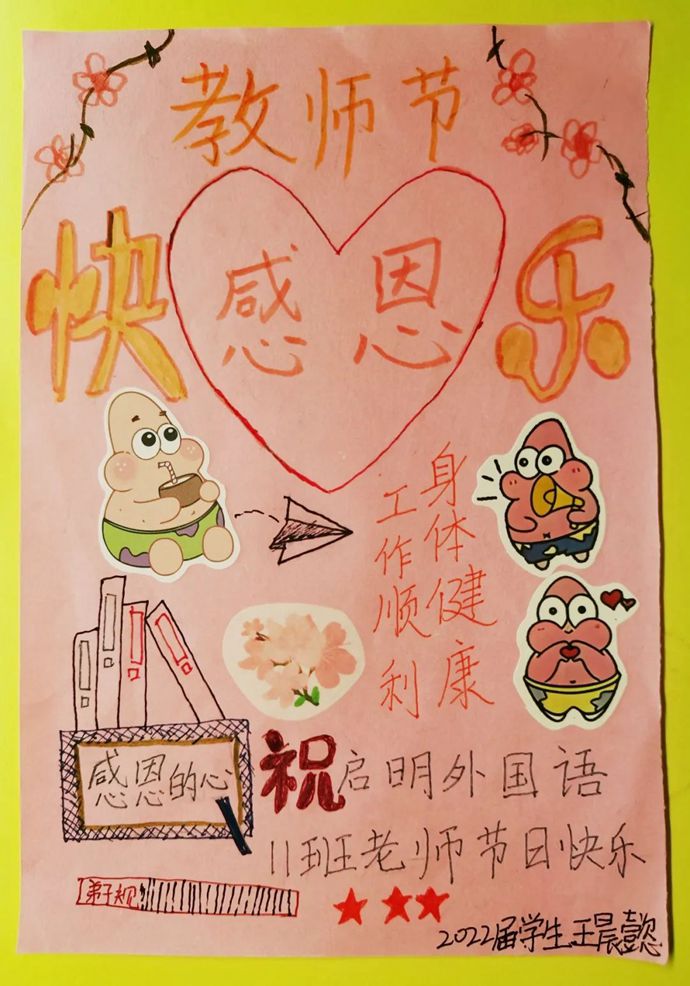 教师节
快乐
感恩
身体健康
工作顺利
感恩的心
祝启明外国语
11班老师节日快乐
弟子规
2022届学生王晨懿